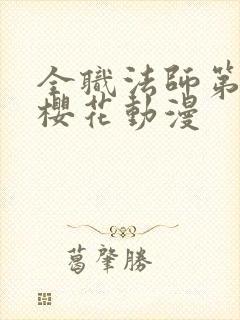 全職法師第
櫻花動漫
葛肇勝